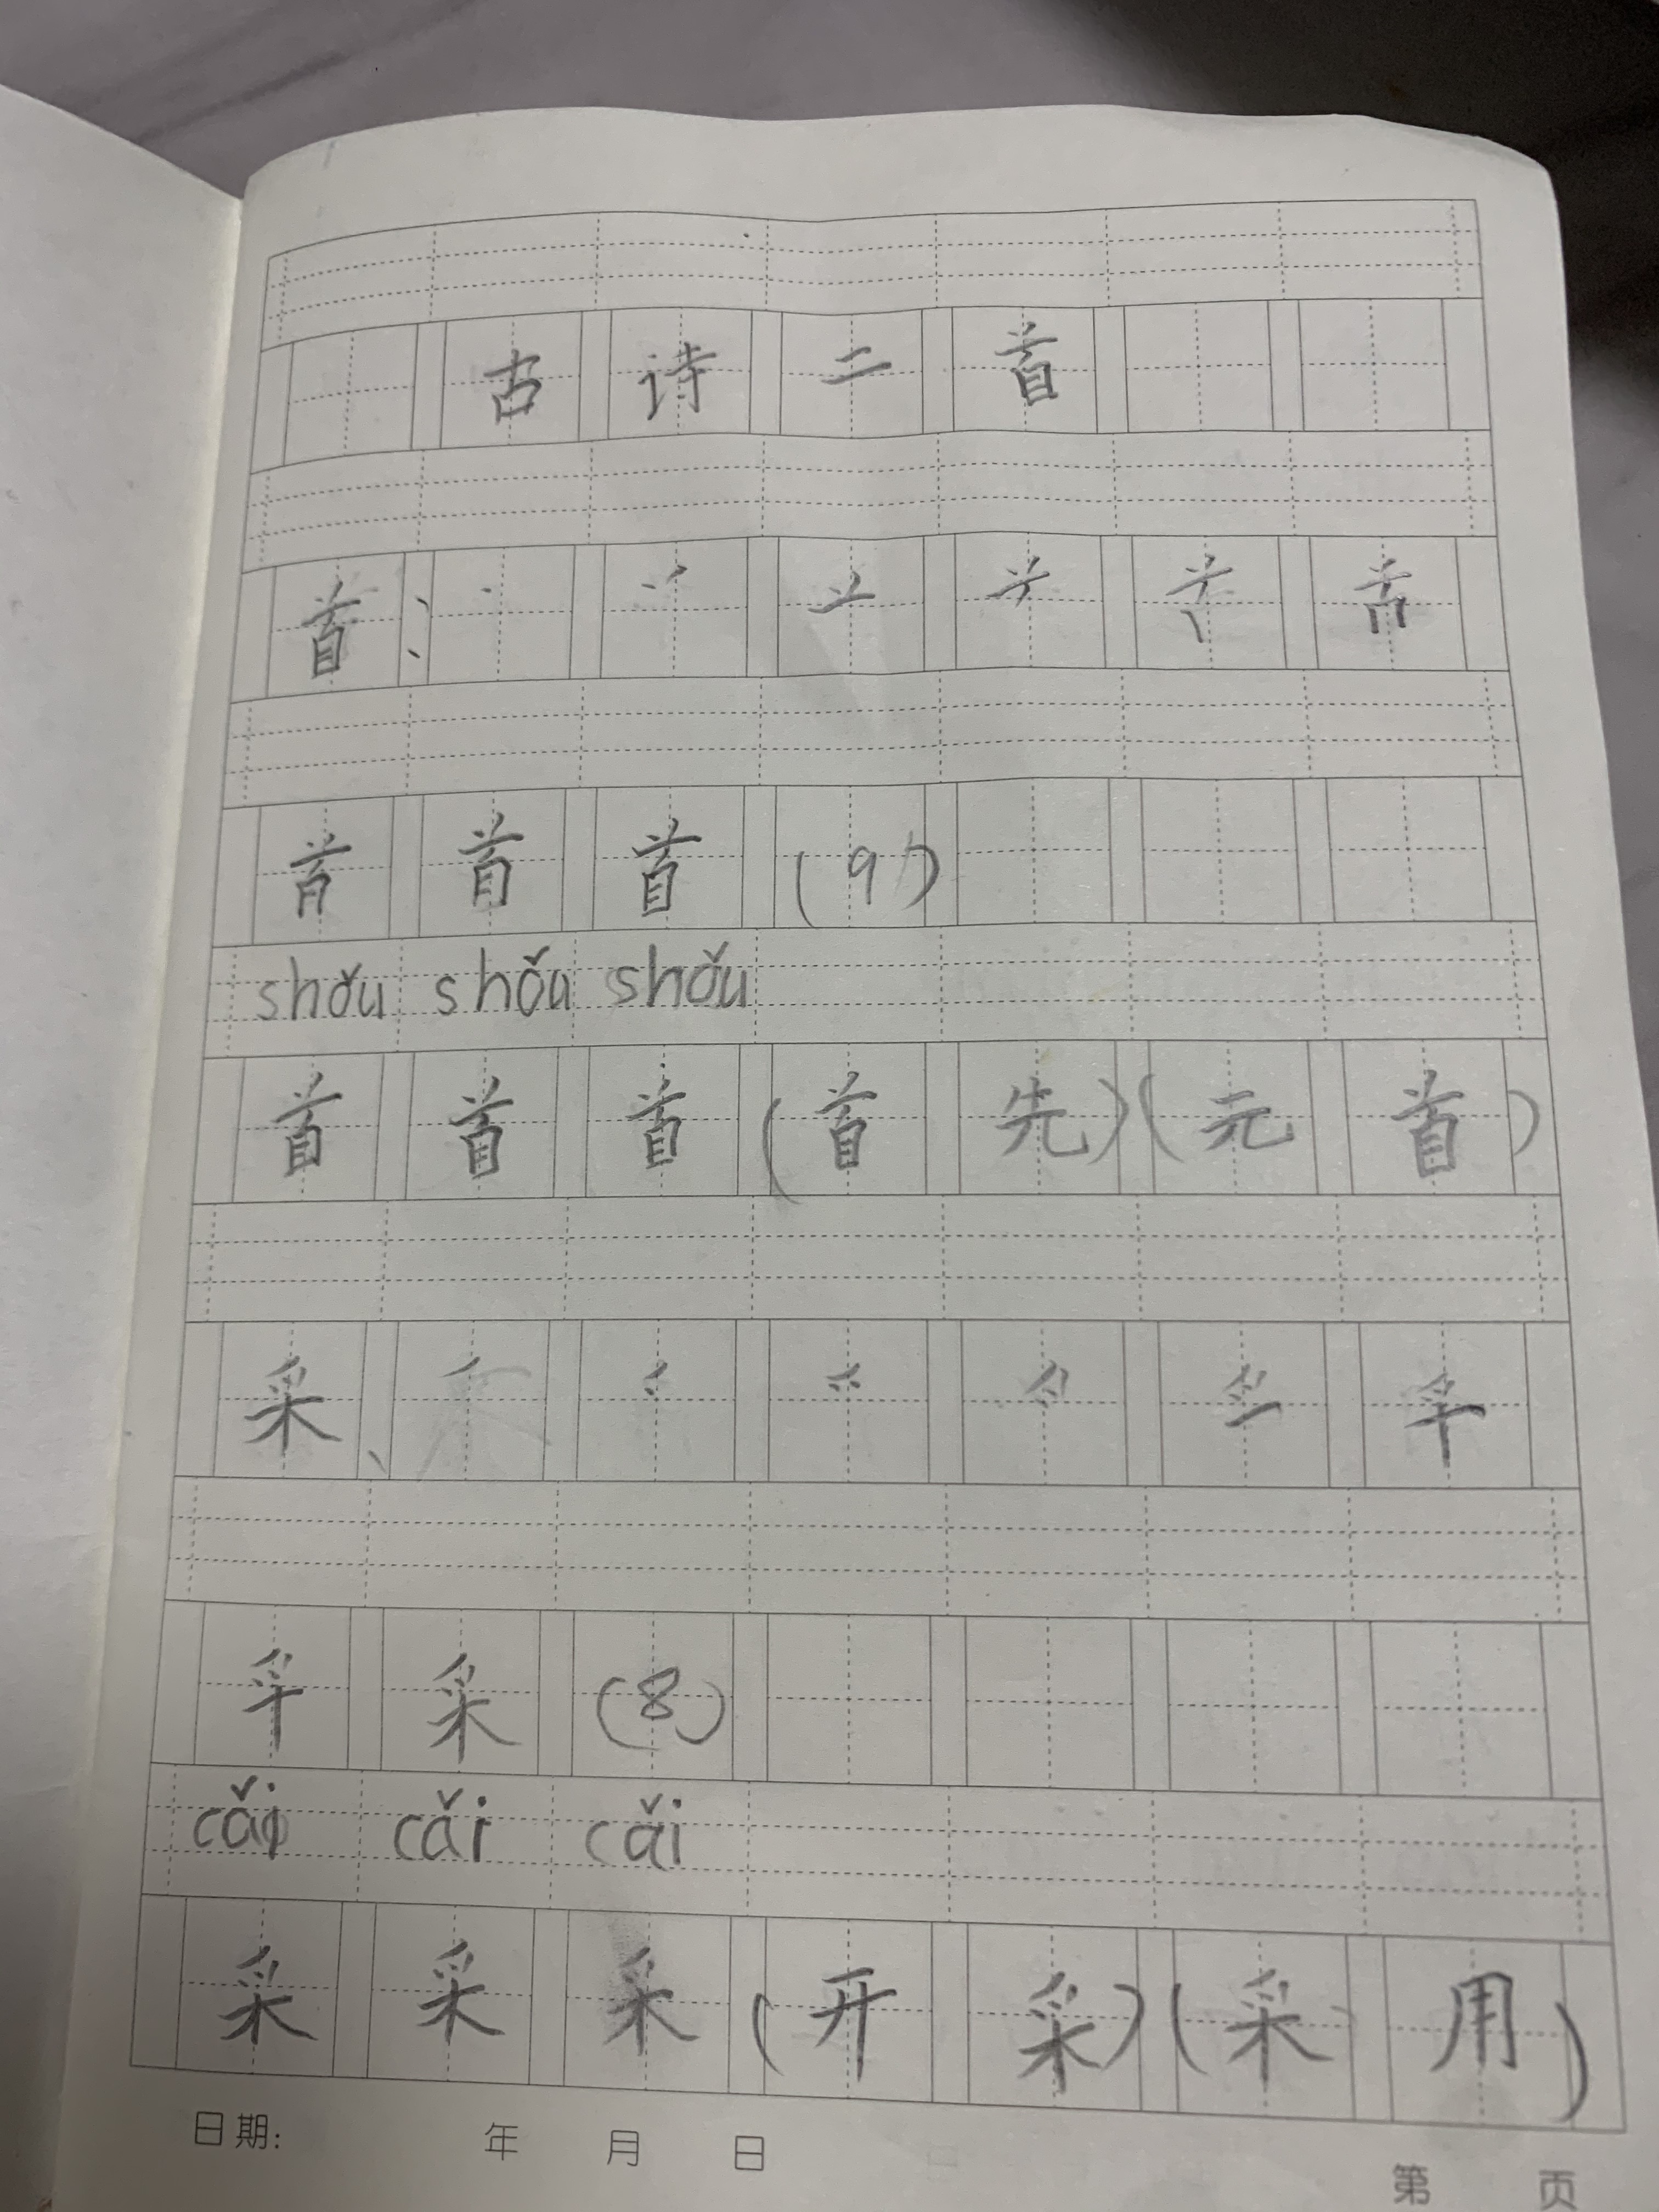 古诗二首
首:
首首首(9)
shǒu shǒu shǒu
首首首(首先)(元首)
采、
采(8)
cǎi cǎi cǎi
采采采(开采)(采用)
日期: 年 月 日
第 页